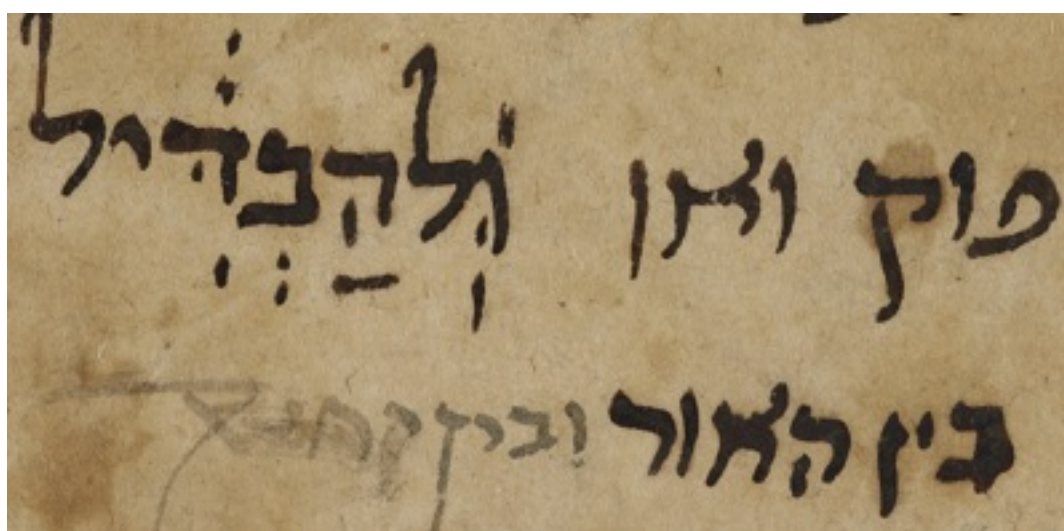 פוק ואן וּֽלהַבְדִּ֔יל
בין האור ובין